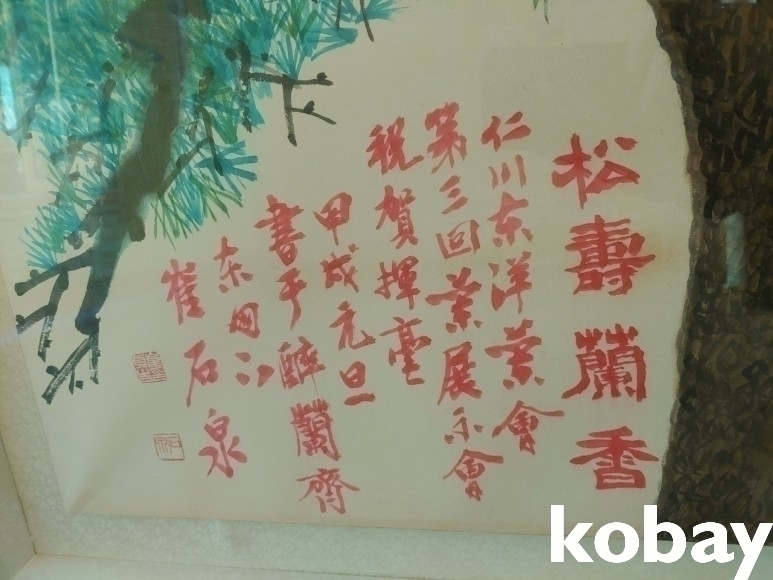 松壽蘭香
仁川东洋會
第三回展示會
祝賀揮毫
甲戌元旦
書于醉蘭齊
东
崔石泉
kobay